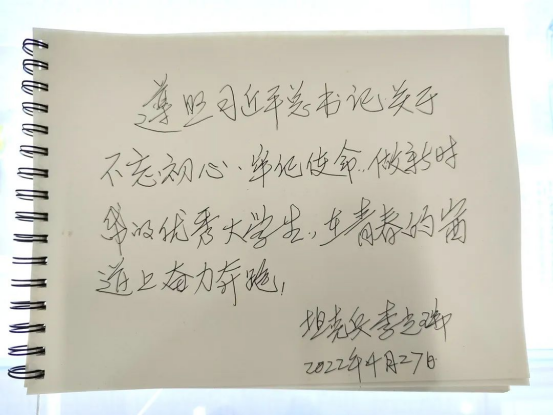 遵照习近平总书记关于
不忘初心、牢记使命、做新时
代的优秀大学生,在青春的
道上奋力奔跑!
坦克兵李
2022年4月27日